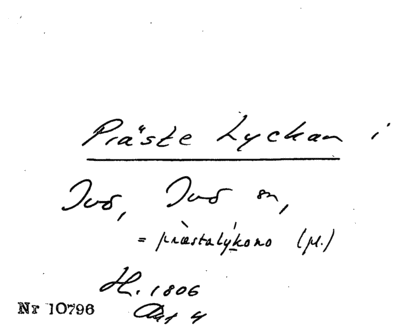 Präste Lyckan i
Jvs, Jvs sn,
= præstalýkono (pl.)
H. 1806
Akt 4
Nr 10796